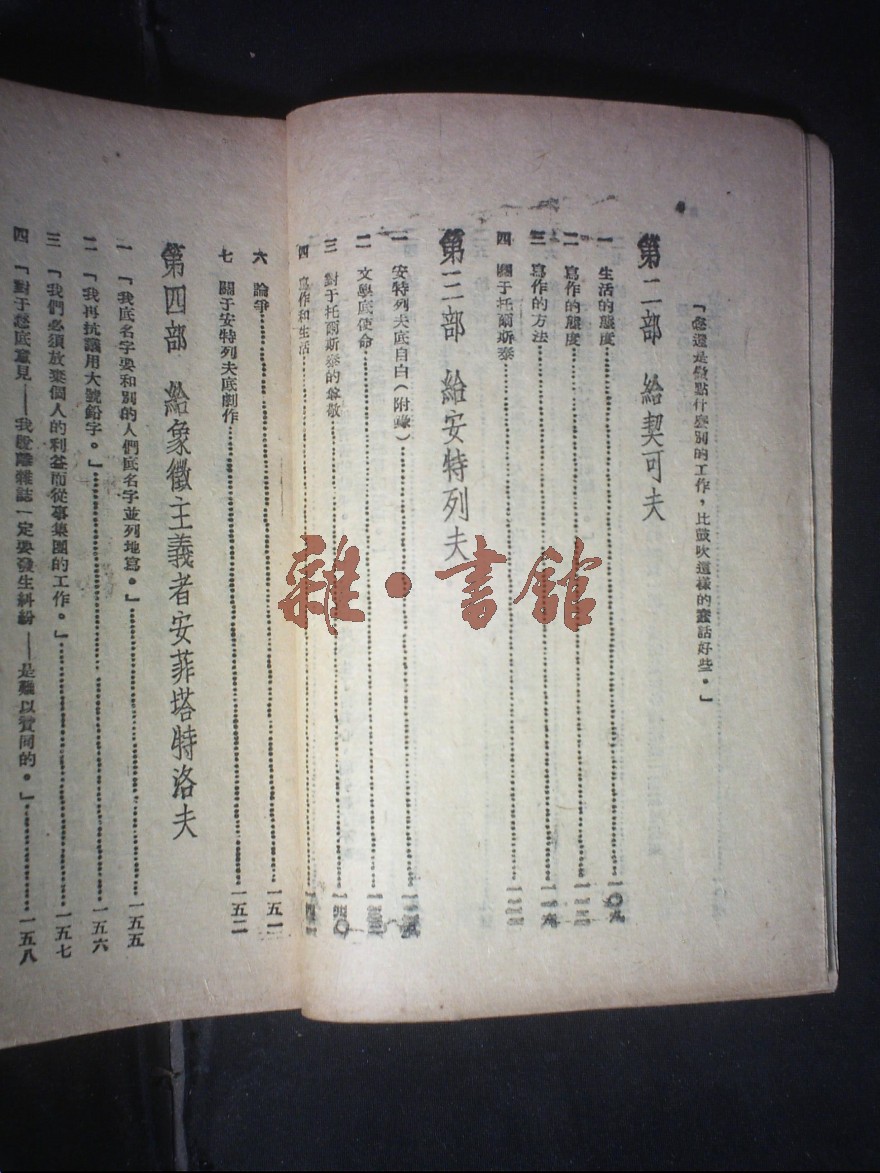 「您還是做點什麼別的工作，比鼓吹這樣的蠢話好些。」
第二部 給契可夫
一 生活的態度……一〇九
二 寫作的態度……
三 寫作的方法……
四 關于托爾斯泰……
第三部 給安特列夫
一 安特列夫底自白（附錄）……
二 文學底使命……
三 對于托爾斯泰的尊敬……一四〇
四 寫作和生活……
六 論爭……一五一
七 關于安特列夫底劇作……一五二
第四部 給象徵主義者安菲塔特洛夫
一 「我底名字要和別的人們底名字並列地寫。」……一五五
二 「我再抗議用大號鉛字。」……一五六
三 「我們必須放棄個人的利益而從事集團的工作。」……一五七
四 「對于您底意見——我脫離雜誌一定要發生糾紛——是難以贊同的。」……一五八
雜·書館